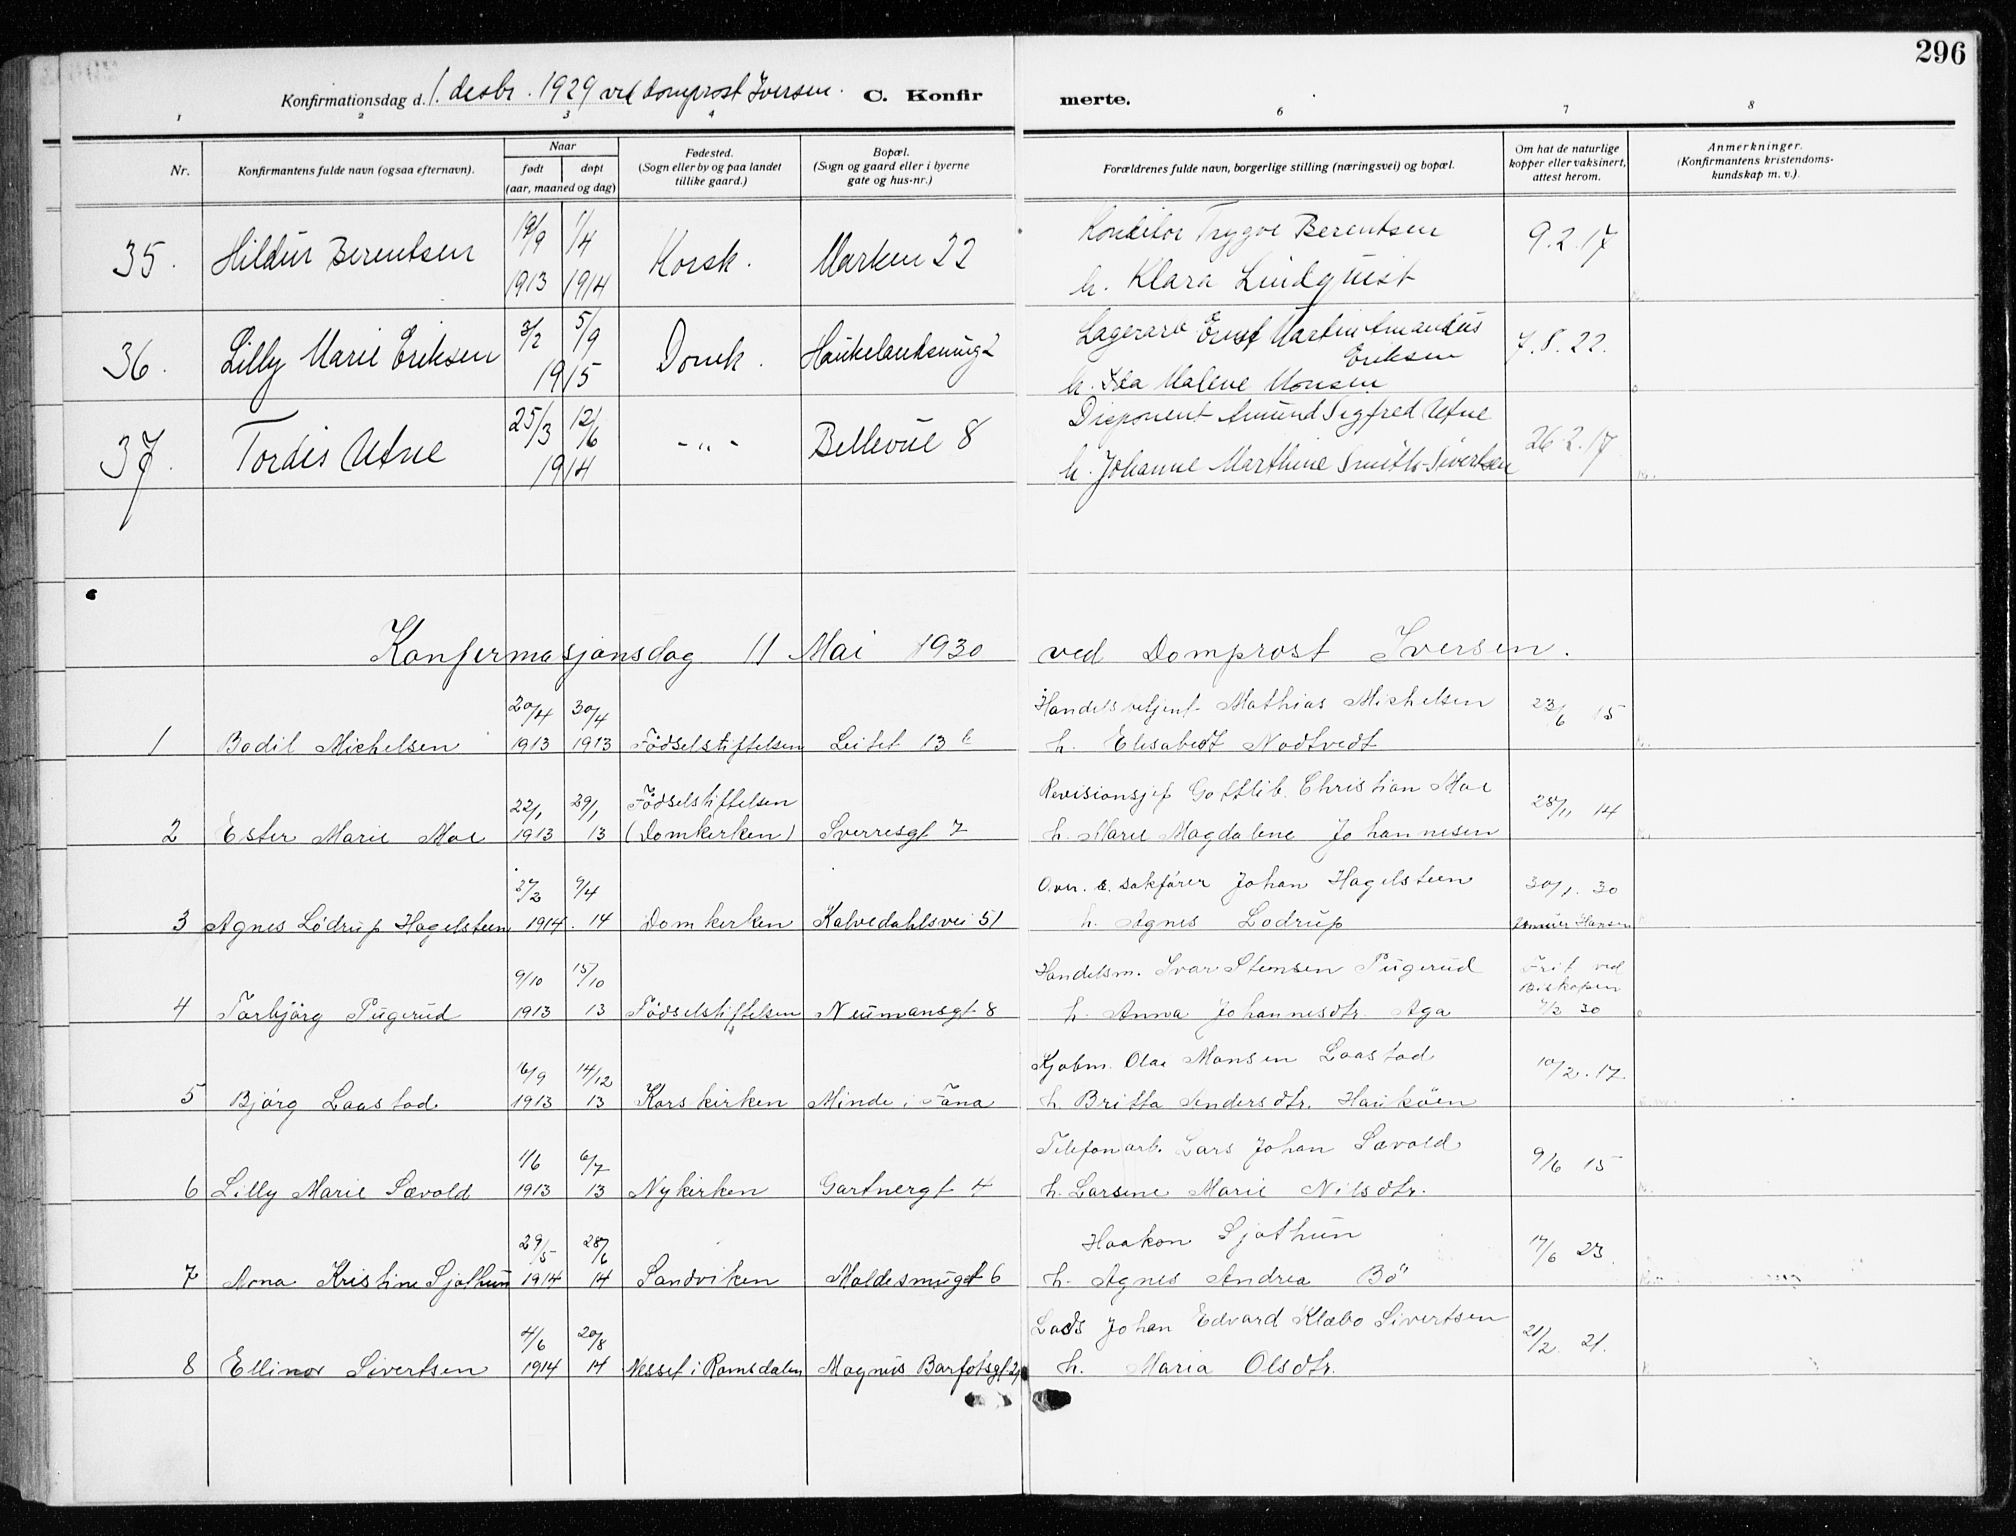 296
Konfirmationsdag d. 1. desbr. 1929 ved domprost Iversen. C. Konfirmerte.
1 2 3 4 6 7 8
Nr. Konfirmantens fulde navn (ogsaa efternavn). Naar født døpt (aar, maaned og dag) Fødested. (Sogn eller by og paa landet tillike gaard.) Bopæl. (Sogn og gaard eller i byerne gate og hus-nr.) Forældrenes fulde navn, borgerlige stilling (næringsvei) og bopæl. Om hat de naturlige kopper eller vaksinert, attest herom. Anmerkninger. (Konfirmantens kristendomskundskap m. v.).
19/9 1/4 Konditor Trygve Berentsen
35. Hildur Berentsen Korsk. Marken 22 9.2.17
1913 1914 h. Klara Lindquist
3/2 5/9 Lagerarb Ernst Martin Amandus
36. Lilly Marie Eriksen Domk. Haukelandsmug 2 Eriksen 7.8.22.
1915 h. Ida Malene Monsen
25/3 12/6 Disponent Amund Sigfred Utne
37. Tordis Utne -"- Bellevue 8 26.2.17
1914 h. Johanne Marthine Smith-Sivertsen
Konfermasjonsdag 11 Mai 1930 ved Domprost Iversen.
20/4 30/4 Handelsbetjent Mathias Michelsen 23/6 15
1 Bodil Michelsen 1913 1913 Födselstiftelsen Leitet 13 b h. Elisabedt Nodtvedt
22/1 29/1 Födselstiftelsen Revisionsjef Gottlib. Christian Moe 28/11 14
2 Ester Marie Moe 1913 13 (Domkerken) Sverresgt 7 h. Marie Magdalene Johannesen
27/2 9/4 Over. r. sakförer Johan Hagelsteen 30/1. 30
3 Agnes Lödrup Hagelsteen 1914. 14 Domkerken Kalvedahlsvei 51 h. Agnes Lodrup Hansen
9/10 15/10 Handelsm. Ivar Stensen Pugerud Frit ved Biskopen
4 Torbjörg Pugerud 1913 13 Födselstiftelsen Neumansgt 8 h. Anna Johannesdtr. Aga 7/2 30
16/9 14/12 Kjobm. Olai Monsen Laastad 10/2. 17.
5 Bjórg Laastad 1913 13 Korskirken Minde i Fana h. Britta Andersdtr. Hauköen
1/6 6/7 Telefonarb. Lars Johan Sævold 9/6 15
6 Lilly Marie Sævold 1913 13 Nykirken Gartnergt 4 h. Larsine Marie Nilsdtr.
29/5 28/6 Haakon Sjothun 17/6 23.
7 Mona Kristine Sjothun 1914 14 Sandviken Moldesmuget 6 h. Agnes Andrea Bö
4/6 20/8 Lods Johan Edvard Klæbo Sivertsen 21/2. 21.
8 Ellinor Sivertsen 1914 14 Nesset i Romsdalen Magnus Barfotsgt h. Maria Olsdtr.